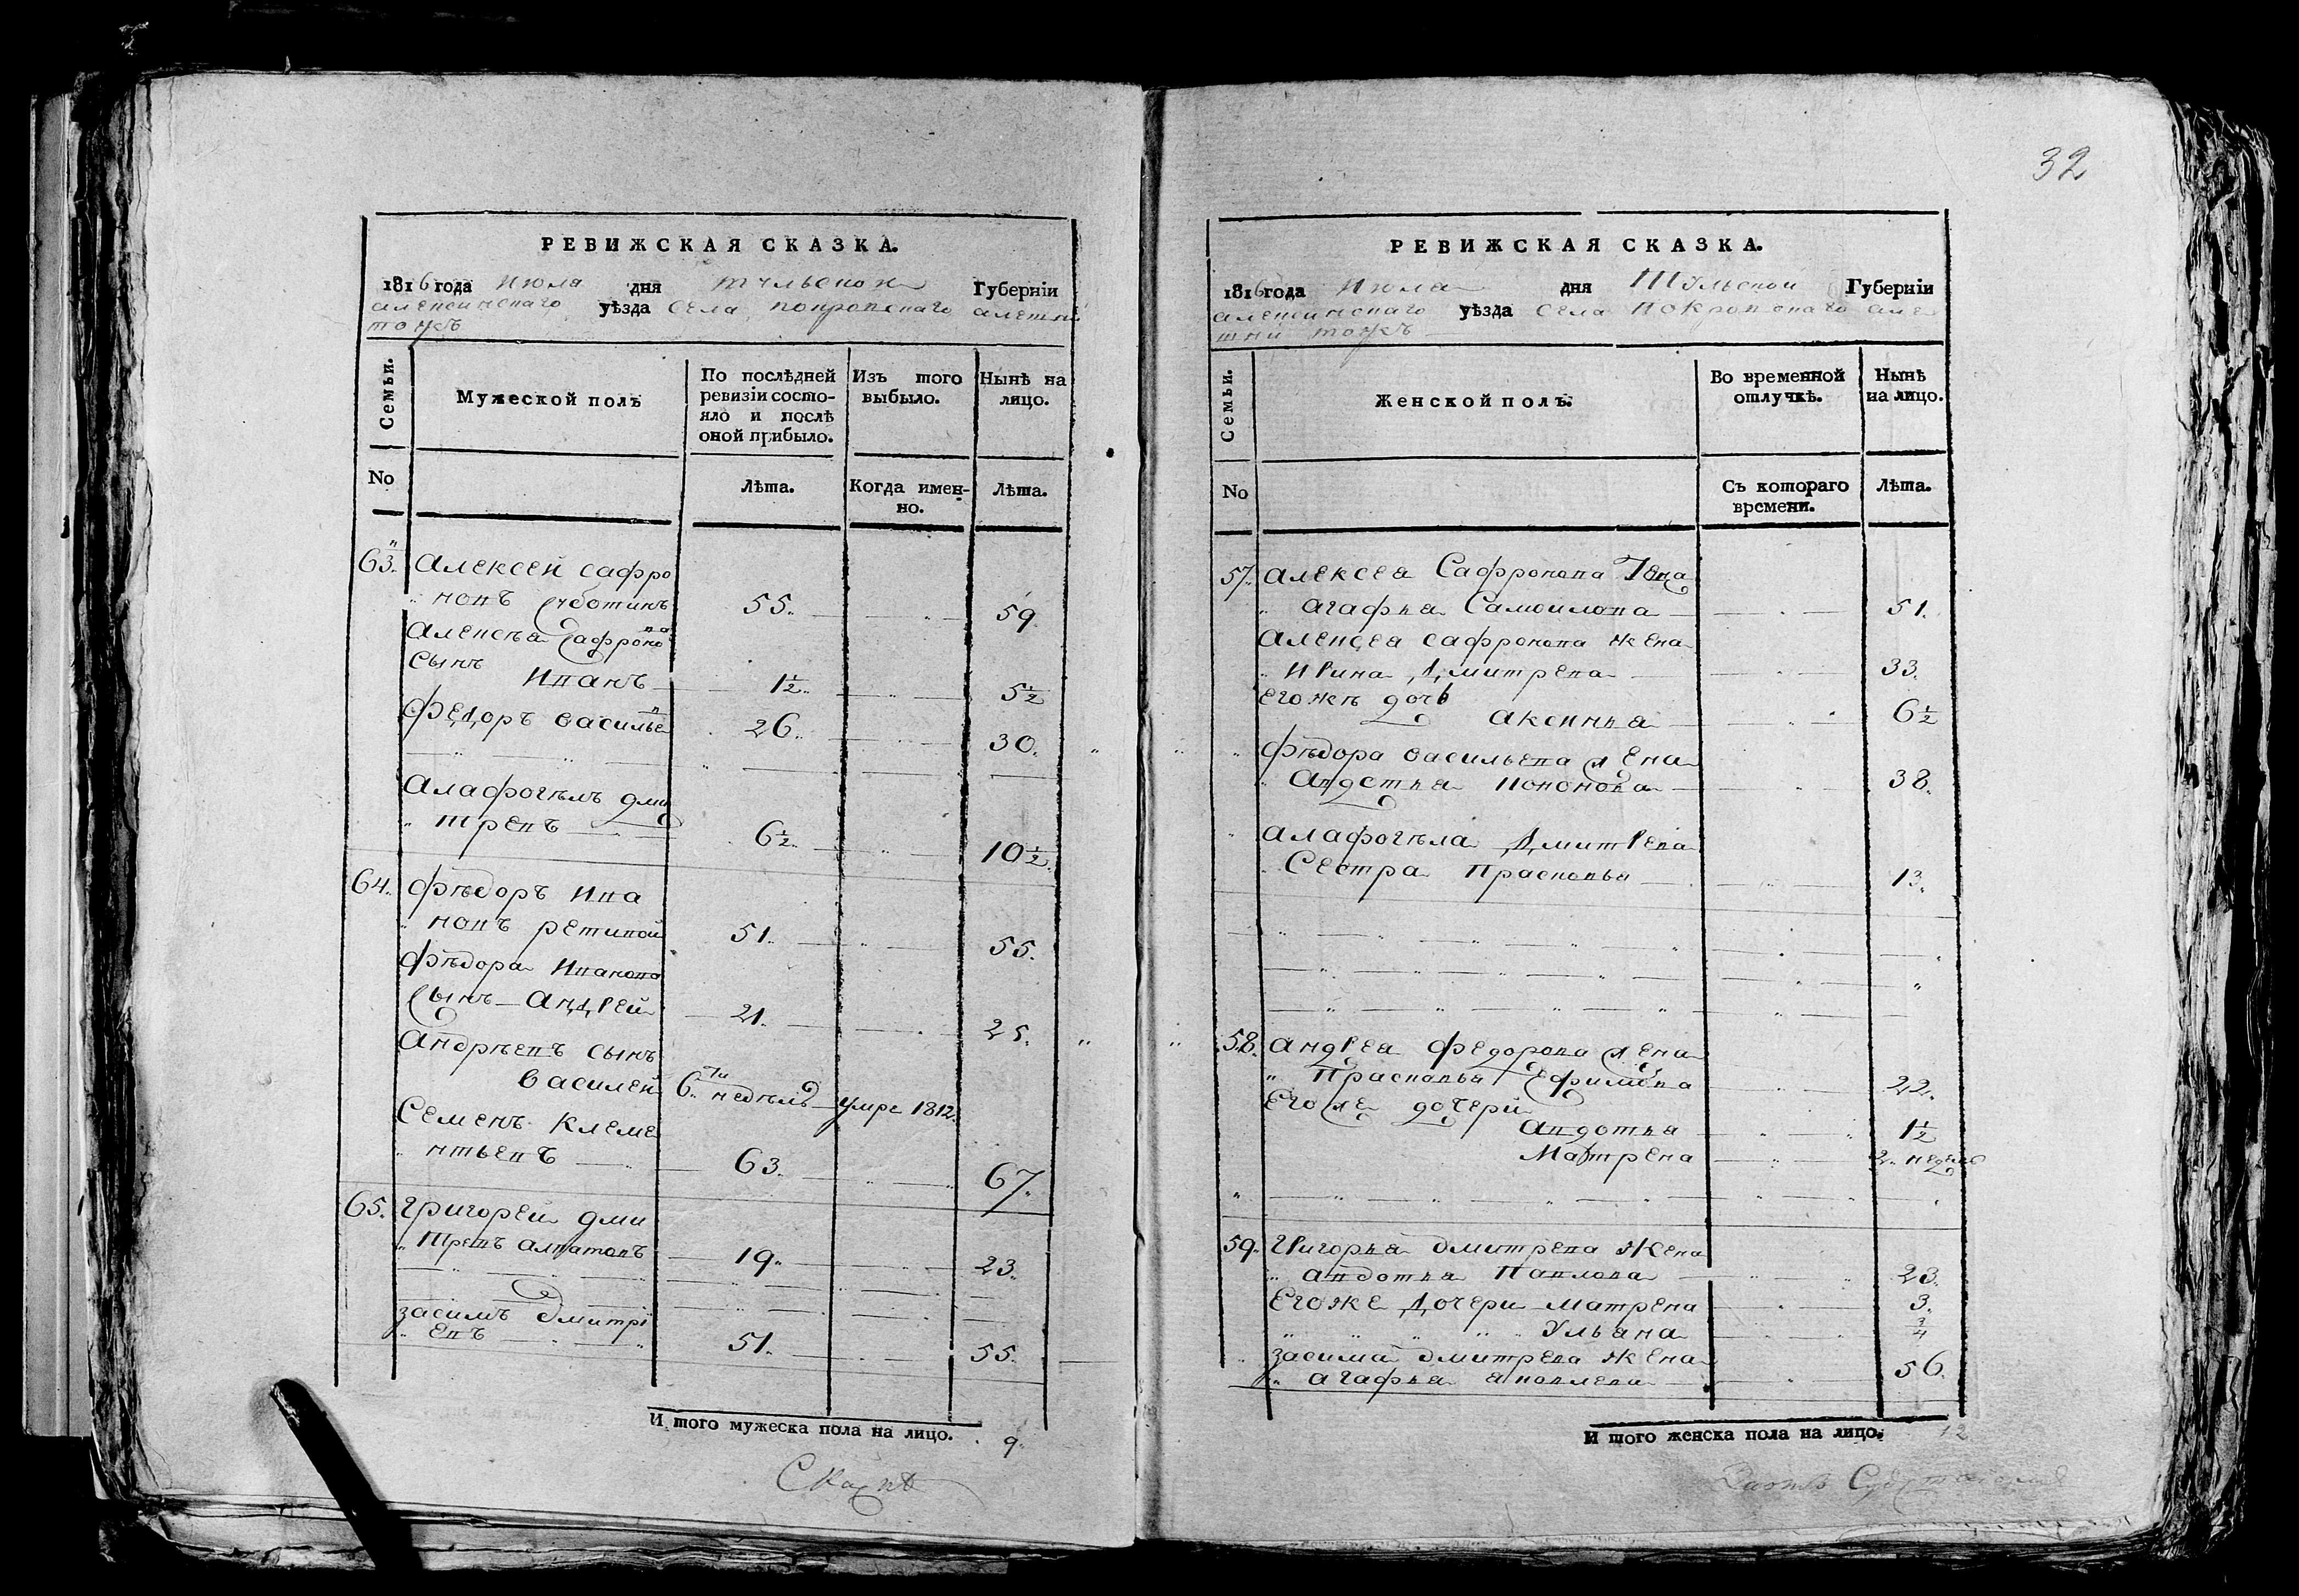 32
РЕВИЖСКАЯ СКАЗКА.
1816 года Июля дня тульской Губерніи
алексинскаго уѣзда села покровскаго алешни
тожъ
Семьи.
Мужеской полъ
По послѣдней ревизіи состояло и послѣ оной прибыло.
Изъ того выбыло.
Нынѣ на лицо.
No
Лѣта.
Когда именно.
Лѣта.
63. Алексей сафро
новъ 55. 59
Алексѣа Сафроно ва
сынъ Иванъ 1½ 5½
Федоръ васильев 26. 30.
Алафогѣлъ дми
тревъ 6½ 10½
64. Фѣдоръ Ива
новъ ретивой 51. 55.
Фѣдора Иванова
Сынъ Андрей 21. 25.
Андрѣевъ сынъ
Василей 6.ти недѣль умре 1812.
Семенъ Клеме
нтьевъ 63. 67.
65. Григорей дми
тревъ алпатовъ 19. 23.
засимъ дмитрі
евъ 51. 55.
И того мужеска пола на лицо. 9.
РЕВИЖСКАЯ СКАЗКА.
1816 года Июля дня Тульской Губерніи
алексинскаго уѣзда села покровскаго але
шни тожъ
Семьи.
Женской полъ.
Во временной отлучкѣ.
Нынѣ на лицо.
No
Съ котораго времени.
Лѣта.
57. алексеа Сафронова Жена
агафьа Самоилова 51.
алексеа сафронова жена
Ирина дмитрева 33.
егожъ дочь
аксиньа 6½
Фѣдора васильева жена
Авдотьа 38.
алафогѣла дмитрева
Сестра Прасковьа 13.
58. андреа федорова жена
Прасковьа Ефимова 22.
Его же дочери
авдотьа 1½
Матрена 2. недели
59. Григорьа дмитрева Жена
авдотьа Павлова 23.
Егоже дочери матрена 3.
Ульана ¾
засима дмитрева жена
агафьа 56.
И того женска пола на лицо. 12